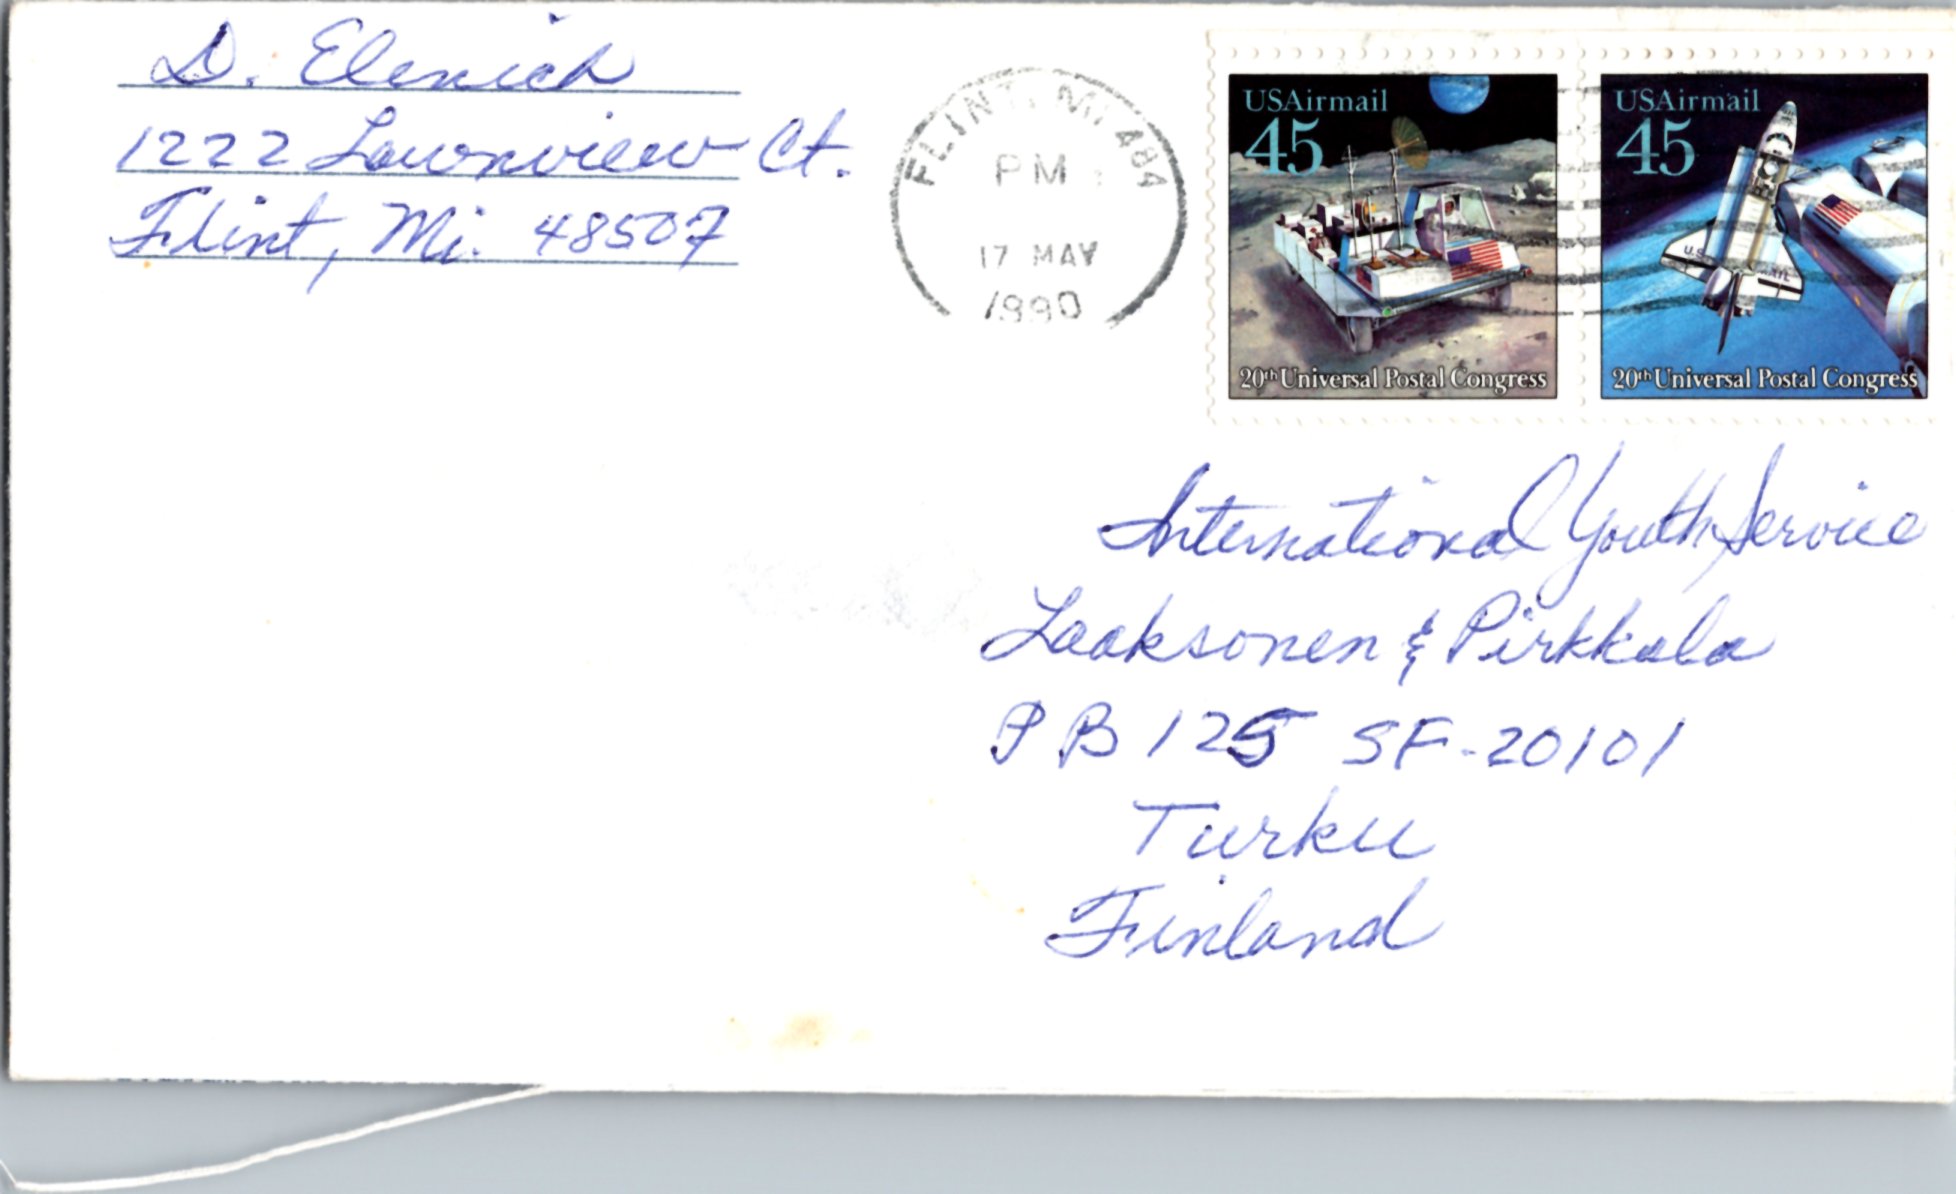 D. Elenich
1222 Lawnview Ct.
Flint, Mi. 48507
FLINT, MI 484
PM
17 MAY
1990
USAirmail
45
20th Universal Postal Congress
USAirmail
45
20th Universal Postal Congress
International Youth Service
Laaksonen & Pirkkala
P B 125 SF-20101
Turku
Finland